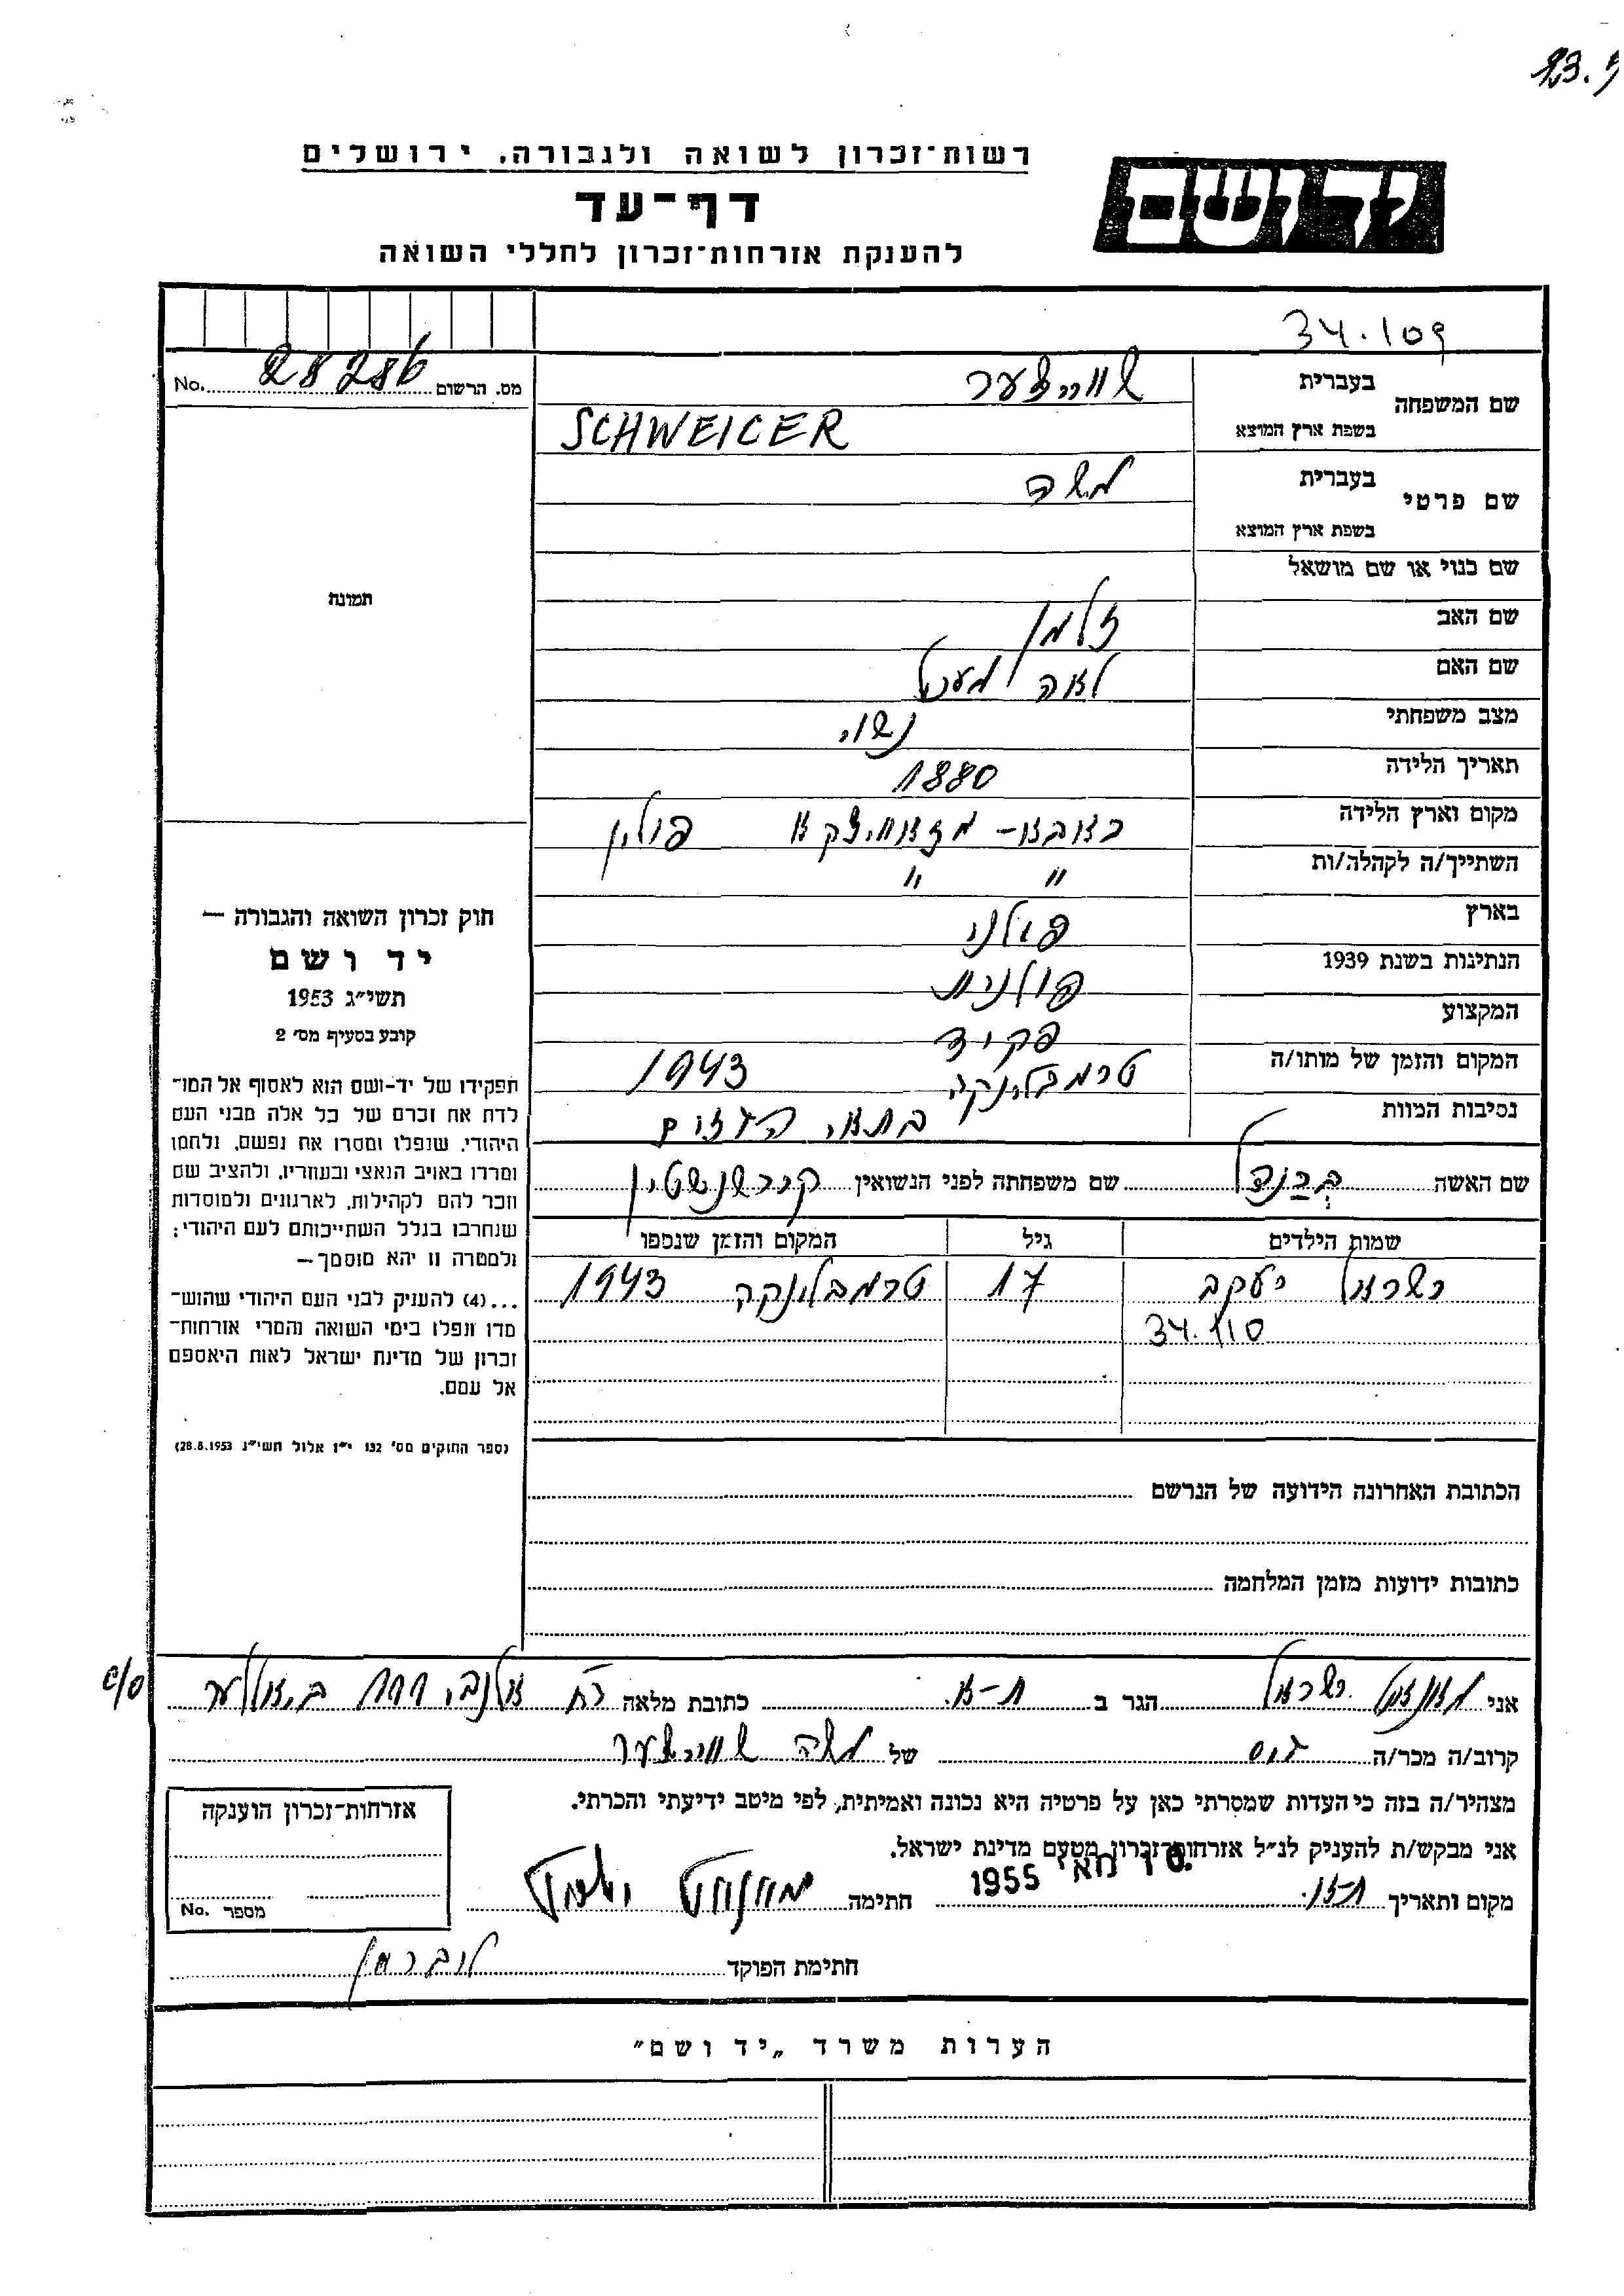 23.5
רשות־זכרון לשואה ולגבורה, ירושלים
יד ושם
דף־עד
להענקת אזרחות־זכרון לחללי השואה
34.109
שם המשפחה בעברית שווייצער
בשפת ארץ המוצא SCHWEICER
מס. הרשום 28286 No.
שם פרטי בעברית משה
בשפת ארץ המוצא
שם כנוי או שם מושאל
תמונה
שם האב זלמן
שם האם לאה
מצב משפחתי נשוי
תאריך הלידה 1880
מקום וארץ הלידה פולין
השתייך/ה לקהלה/ות " "
בארץ פולני
הנתינות בשנת 1939 פולנית
המקצוע פקיד
המקום והזמן של מותו/ה טרמבלינקה 1943
נסיבות המוות בתאי הגזים
שם האשה ברנדל שם משפחתה לפני הנשואין קירשנשטין
שמות הילדים גיל המקום והזמן שנספו
ישראל יעקב 17 טרמבלינקה 1943
34.110
חוק זכרון השואה והגבורה —
יד ושם
תשי״ג 1953
קובע בסעיף מס׳ 2
תפקידו של יד-ושם הוא לאסוף אל המו־
לדת את זכרם של כל אלה מבני העם
היהודי, שנפלו ומסרו את נפשם, נלחמו
ומרדו באויב הנאצי ובעוזריו, ולהציב שם
וזכר להם לקהילות, לארגונים ולמוסדות
שנחרבו בגלל השתייכותם לעם היהודי;
ולמטרה זו יהא מוסמך—
...(4) להעניק לבני העם היהודי שהוש־
מדו ונפלו בימי השואה והמרי אזרחות־
זכרון של מדינת ישראל לאות היאספם
אל עמם.
(ספר החוקים מס׳ 132 י״ז אלול תשי״ג 28.8.1953)
הכתובת האחרונה הידועה של הנרשם
כתובות ידועות מזמן המלחמה
אני ישראל הגר ב ת-א. כתובת מלאה רח אלנבי 111 c/o
קרוב/ה מכר/ה גיס של משה שווייצער
מצהיר/ה בזה כי העדות שמסרתי כאן על פרטיה היא נכונה ואמיתית, לפי מיטב ידיעתי והכרתי.
אני מבקש/ת להעניק לנ״ל אזרחות־זכרון מטעם מדינת ישראל.
מקום ותאריך ת-א. 10 מאי 1955 חתימה
אזרחות־זכרון הוענקה
מספר No.
חתימת הפוקד ליברמן
הערות משרד „יד ושם״